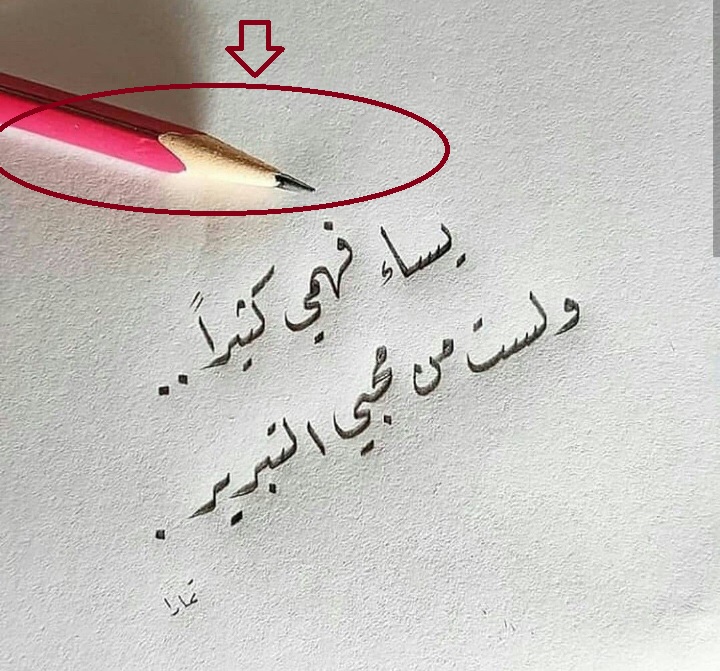 يساء فهمي كثيراً..
ولست من محبي التبرير.
تمارا